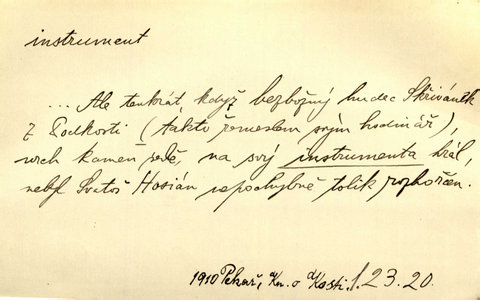 instrument
... Ale tenkrát, když bezbožný hudec Skřivánek
z Podkosti (takto řemeslem svým hodinář),
vrch kamen sedě, na svůj instrumenta hrál,
nebyl Svatoš Hosián nepochybně tolik rozhořčen.
1910 Pekař, Kn. o Kosti. I. 23. 20.